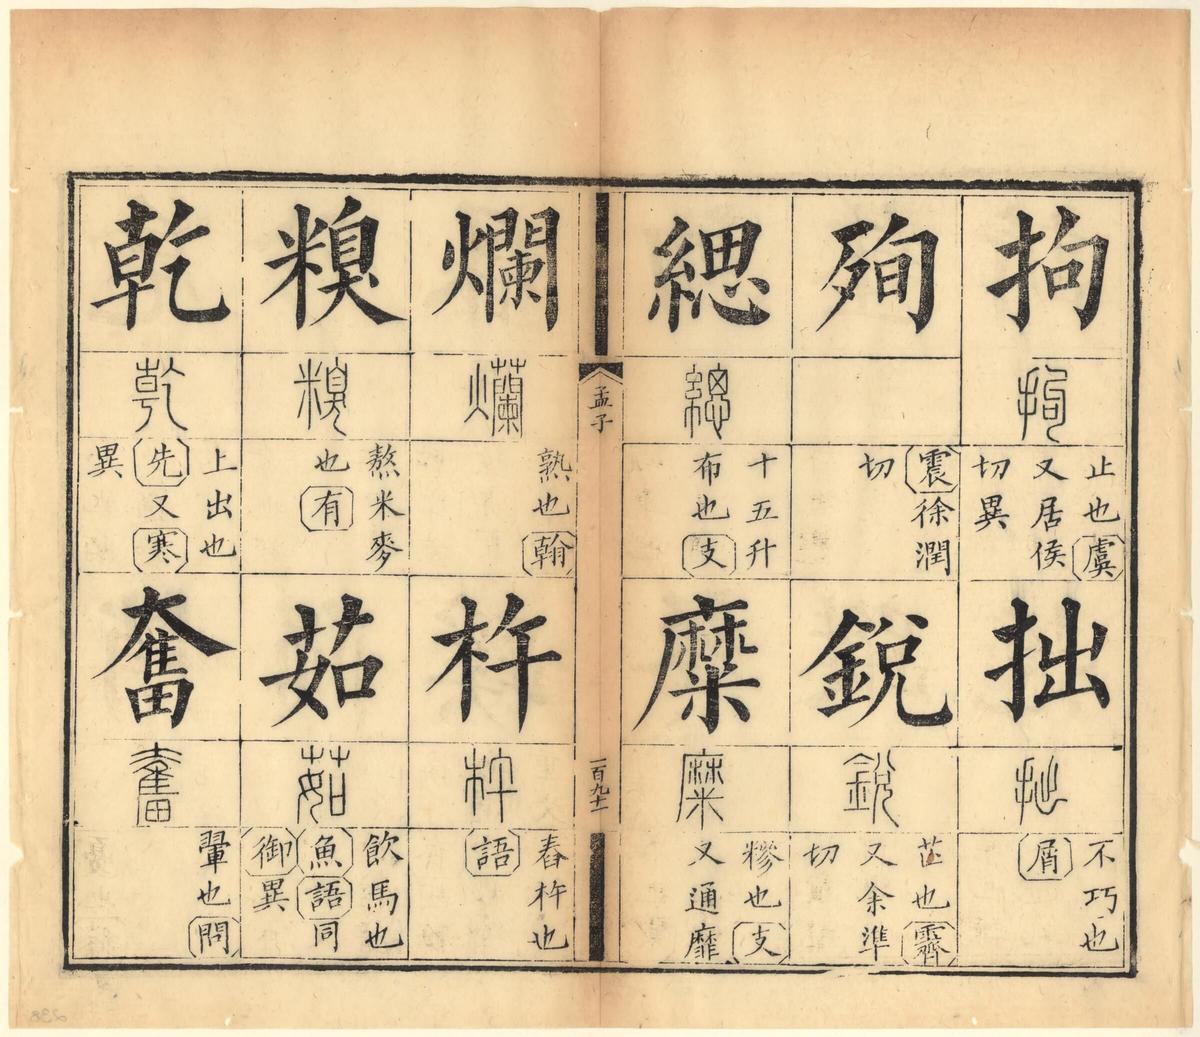 拘
拘
止也虞
又居侯
切異
拙
拙
不巧也
屑
殉
震徐潤
切
銳
銳
芒也霽
又余準
切
緦
緦
十五升
布也支
糜
糜
糝也支
又通靡
孟子
一百九十一
爛
爛
熟也翰
杵
杵
舂杵也
語
糗
糗
熬米麥
也有
茹
茹
飲馬也
魚語同
御異
乾
乾
上出也
先又寒
異
奮
奮
翬也問